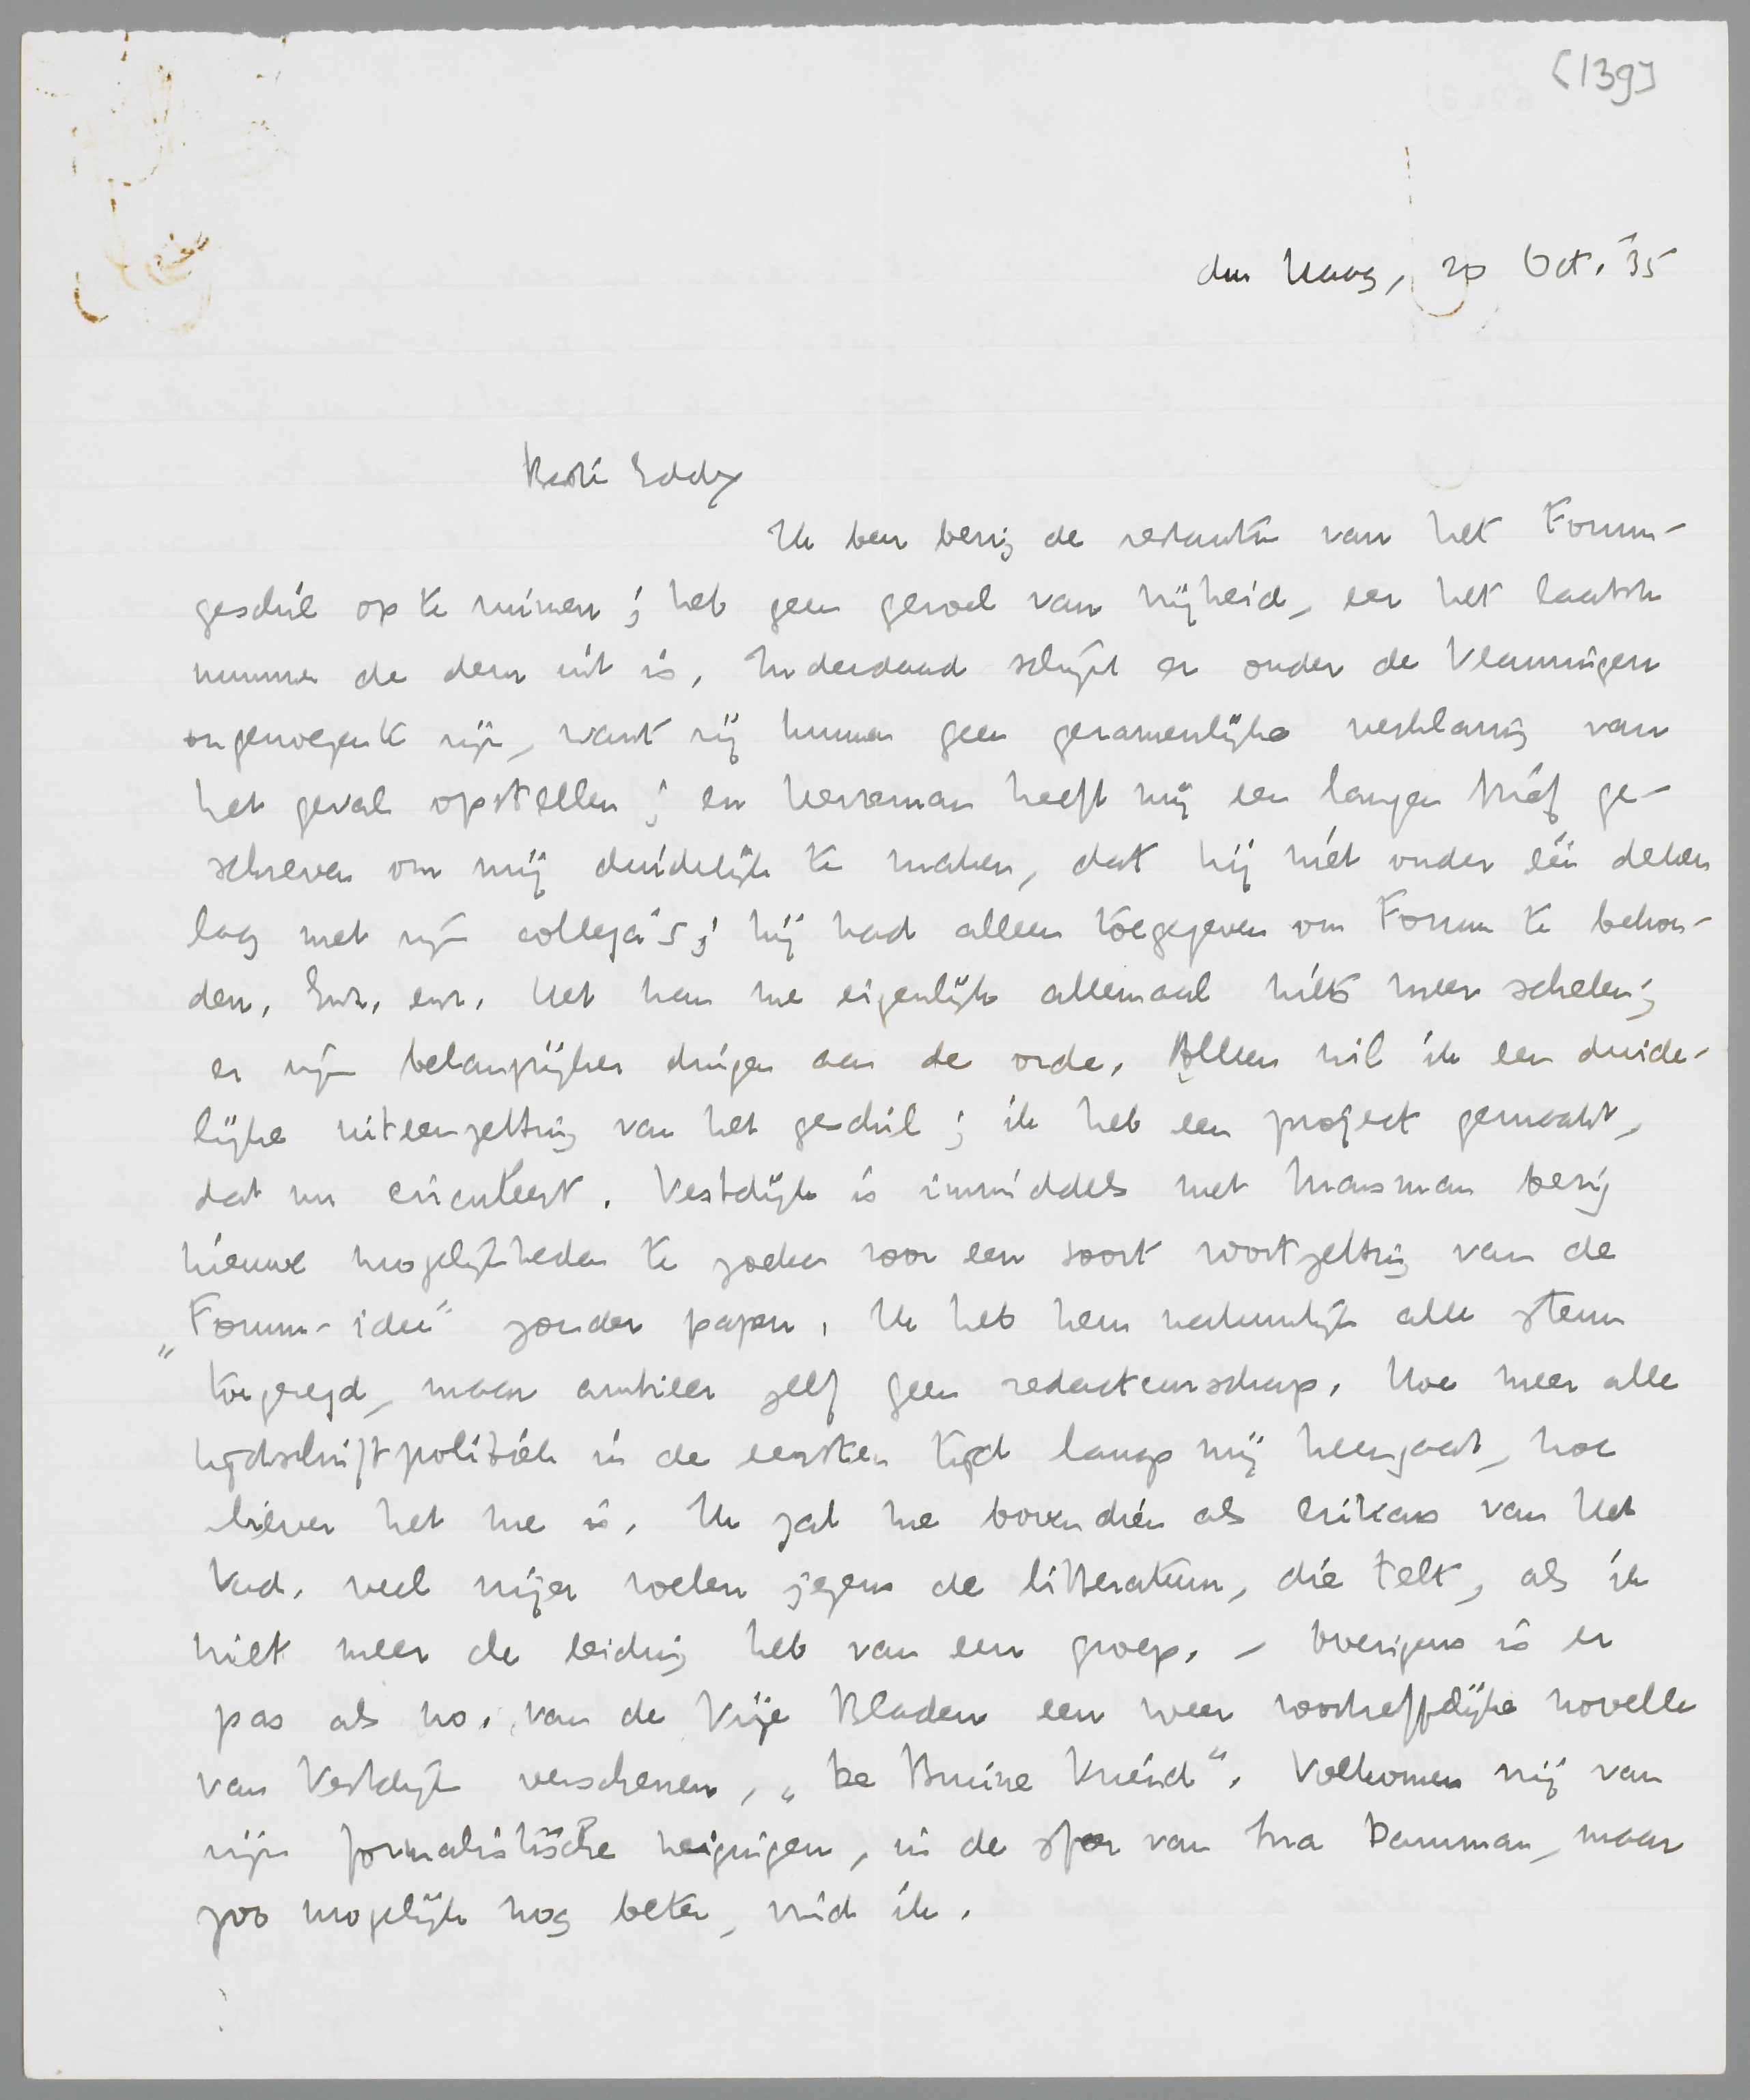 [139]
den Haag, 20 Oct. '35
Beste Eddy
Ik ben bezig de restanten van het Forum-
geschil op te ruimen; heb geen gevoel van vrijheid, eer het laatste
nummer de deur uit is. Inderdaad schijnt er onder de Vlamingen
ongenoegen te zijn, want zij kunnen geen gezamenlijke verklaring van
het geval opstellen; en Herreman heeft mij een langen brief ge-
schreven om mij duidelijk te maken, dat hij niet onder één deken
lag met zijn collega's; hij had alleen toegegeven om Forum te behou-
den. Enz. enz. Het kan me eigenlijk allemaal niets meer schelen;
er zijn belangrijker dingen aan de orde. Alleen wil ik een duide-
lijke uiteenzetting van het geschil; ik heb een project gemaakt,
dat nu circuleert. Vestdijk is inmiddels met Marsman bezig
nieuwe mogelijkheden te zoeken voor een soort voortzetting van de
„Forum-idee" zonder papen. Ik heb hem natuurlijk alle steun
toegezegd, maar ambieer zelf geen redacteurschap. Hoe meer alle
tijdschriftpolitiek in de eersten tijd langs mij heengaat, hoe
liever het me is. Ik zal me bovendien als criticus van Het
Vad. veel vrijer voelen jegens de litteratuur, die telt, als ik
niet meer de leiding heb van een groep. – Overigens is er
pas als no. van de Vrije Bladen een weer voortreffelijke novelle
van Vestdijk verschenen, „De Bruine Vriend". Volkomen vrij van
zijn formalistische neigingen, in de sfeer van Ina Damman, maar
zoo mogelijk nog beter, vind ik.